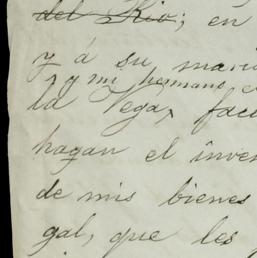 del Rio; en
y á su mari
y mi hermano
la Vega, fac
hagan el inven
de mis bienes
gal, que les